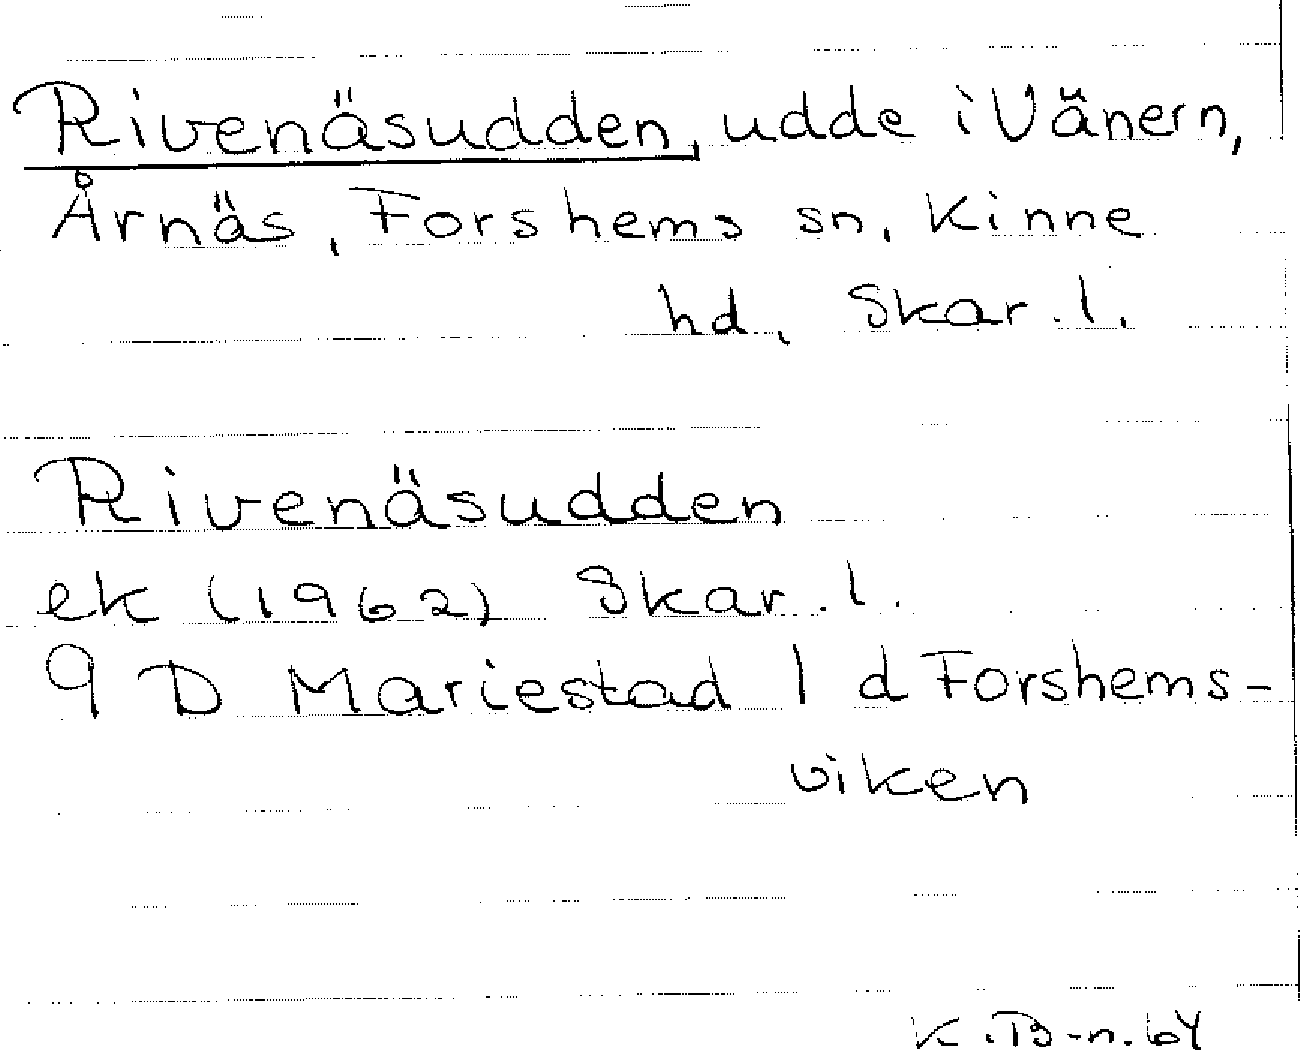 Rivenäsudden, udde i Vänern,
Årnäs, Forshems sn, Kinne
hd, Skar. l.
Rivenäsudden
ek (1962) Skar. l.
9 D Mariestad 1 d Forshems-
viken
K.B-n. 64